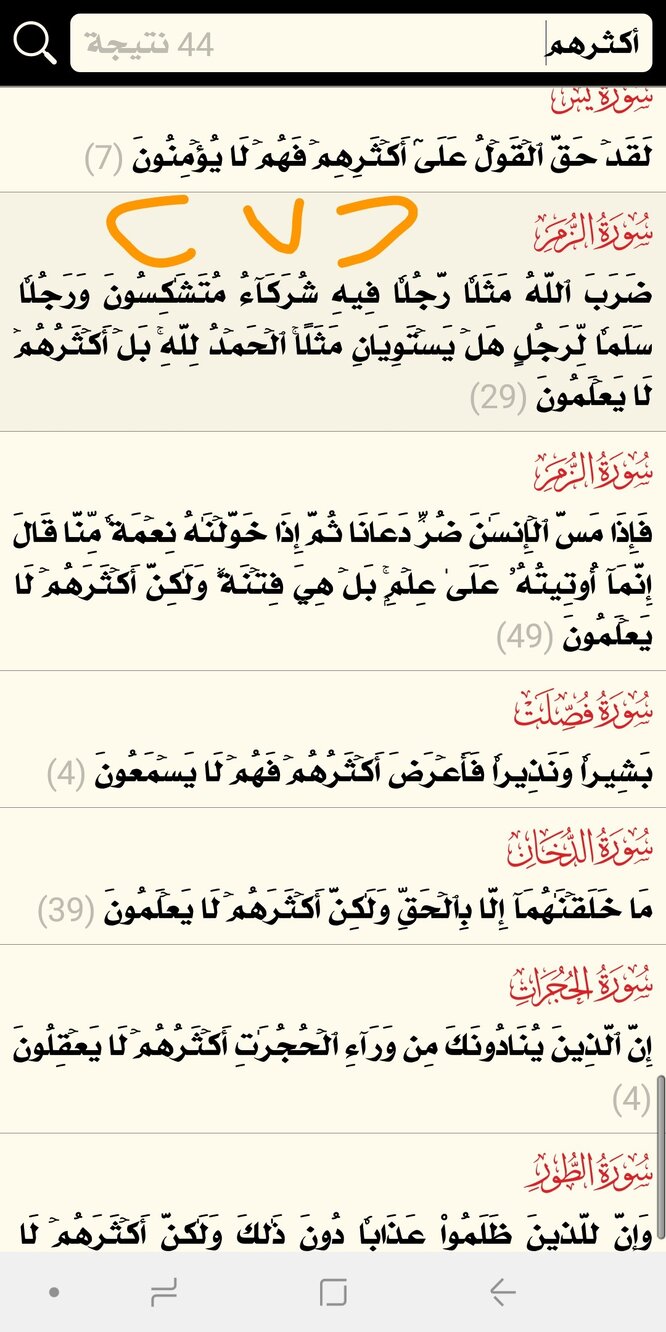 أكثرهم
44 نتيجة
سُورَةُ يسٓ
لَقَدۡ حَقَّ ٱلۡقَوۡلُ عَلَىٰٓ أَكۡثَرِهِمۡ فَهُمۡ لَا يُؤۡمِنُونَ (7)
سُورَةُ الزُّمَرِ
ضَرَبَ ٱللَّهُ مَثَلٗا رَّجُلٗا فِيهِ شُرَكَآءُ مُتَشَٰكِسُونَ وَرَجُلٗا
سَلَمٗا لِّرَجُلٍ هَلۡ يَسۡتَوِيَانِ مَثَلًاۚ ٱلۡحَمۡدُ لِلَّهِۚ بَلۡ أَكۡثَرُهُمۡ
لَا يَعۡلَمُونَ (29)
سُورَةُ الزُّمَرِ
فَإِذَا مَسَّ ٱلۡإِنسَٰنَ ضُرّٞ دَعَانَا ثُمَّ إِذَا خَوَّلۡنَٰهُ نِعۡمَةٗ مِّنَّا قَالَ
إِنَّمَآ أُوتِيتُهُۥ عَلَىٰ عِلۡمِۭۚ بَلۡ هِيَ فِتۡنَةٞ وَلَٰكِنَّ أَكۡثَرَهُمۡ لَا
يَعۡلَمُونَ (49)
سُورَةُ فُصِّلَتۡ
بَشِيرٗا وَنَذِيرٗا فَأَعۡرَضَ أَكۡثَرُهُمۡ فَهُمۡ لَا يَسۡمَعُونَ (4)
سُورَةُ الدُّخَانِ
مَا خَلَقۡنَٰهُمَآ إِلَّا بِٱلۡحَقِّ وَلَٰكِنَّ أَكۡثَرَهُمۡ لَا يَعۡلَمُونَ (39)
سُورَةُ الحُجُرَاتِ
إِنَّ ٱلَّذِينَ يُنَادُونَكَ مِن وَرَآءِ ٱلۡحُجُرَٰتِ أَكۡثَرُهُمۡ لَا يَعۡقِلُونَ
(4)
سُورَةُ الطُّورِ
وَإِنَّ لِلَّذِينَ ظَلَمُواْ عَذَابٗا دُونَ ذَٰلِكَ وَلَٰكِنَّ أَكۡثَرَهُمۡ لَا